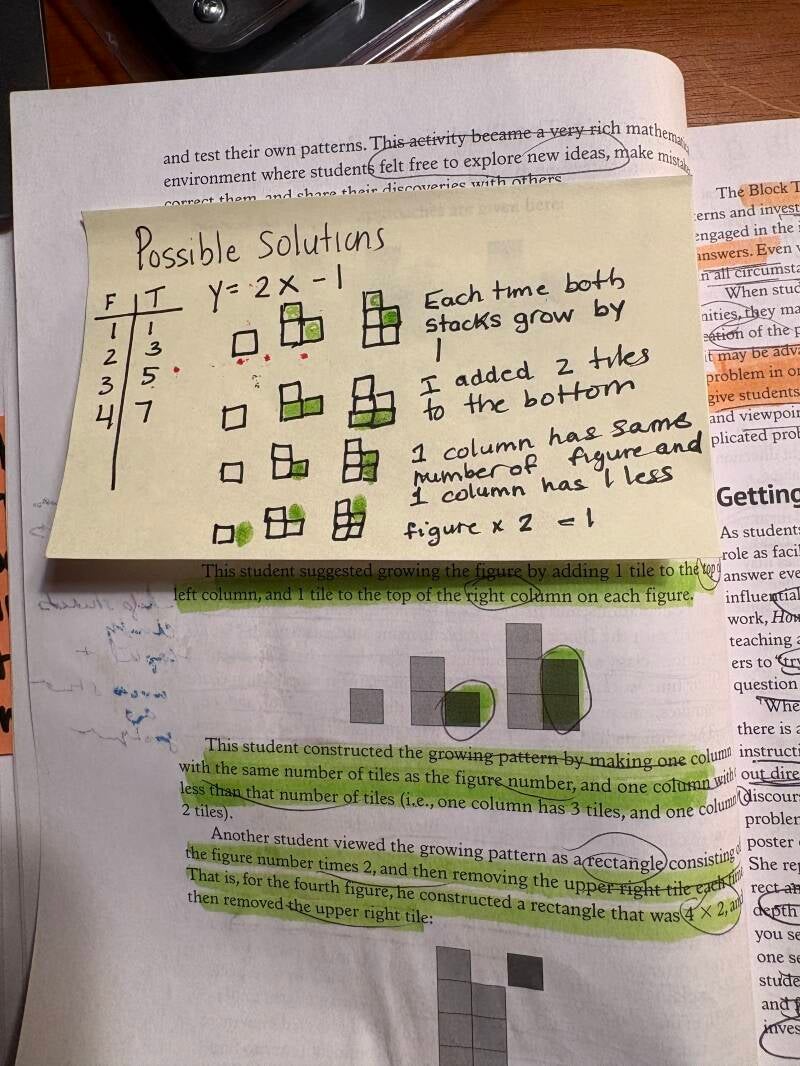 and test their own patterns. This activity became a very rich
environment where students felt free to explore new ideas, make
correct them, and share their discoveries with others
Possible Solutions
F T
1 1
2 3
3 5
4 7
Y= 2x -1
Each time both
stacks grow by
1
I added 2 tiles
to the bottom
1 column has same
number of figure and
1 column has 1 less
figure x 2 = 1
This student suggested growing the figure by adding 1 tile to the top
left column, and 1 tile to the top of the right column on each figure.
This student constructed the growing pattern by making one column
with the same number of tiles as the figure number, and one column with
less than that number of tiles (i.e., one column has 3 tiles, and one column
2 tiles).
Another student viewed the growing pattern as a rectangle consisting
the figure number times 2, and then removing the upper right tile each time
That is, for the fourth figure, he constructed a rectangle that was 4 × 2, and
then removed the upper right tile:
The Block
and invest
engaged in the
answers. Even
all circumsta
When stud
they ma
of the p
it may be adva
problem in or
give students
and viewpoin
plicated prob
Getting
As students
role as facil
answer eve
influential
work, How
teaching a
ers to "try
question
"Whe
there is a
instructi
out dire
discours
problem
poster
She rep
rect an
depth
you se
one se
stude
and
inves